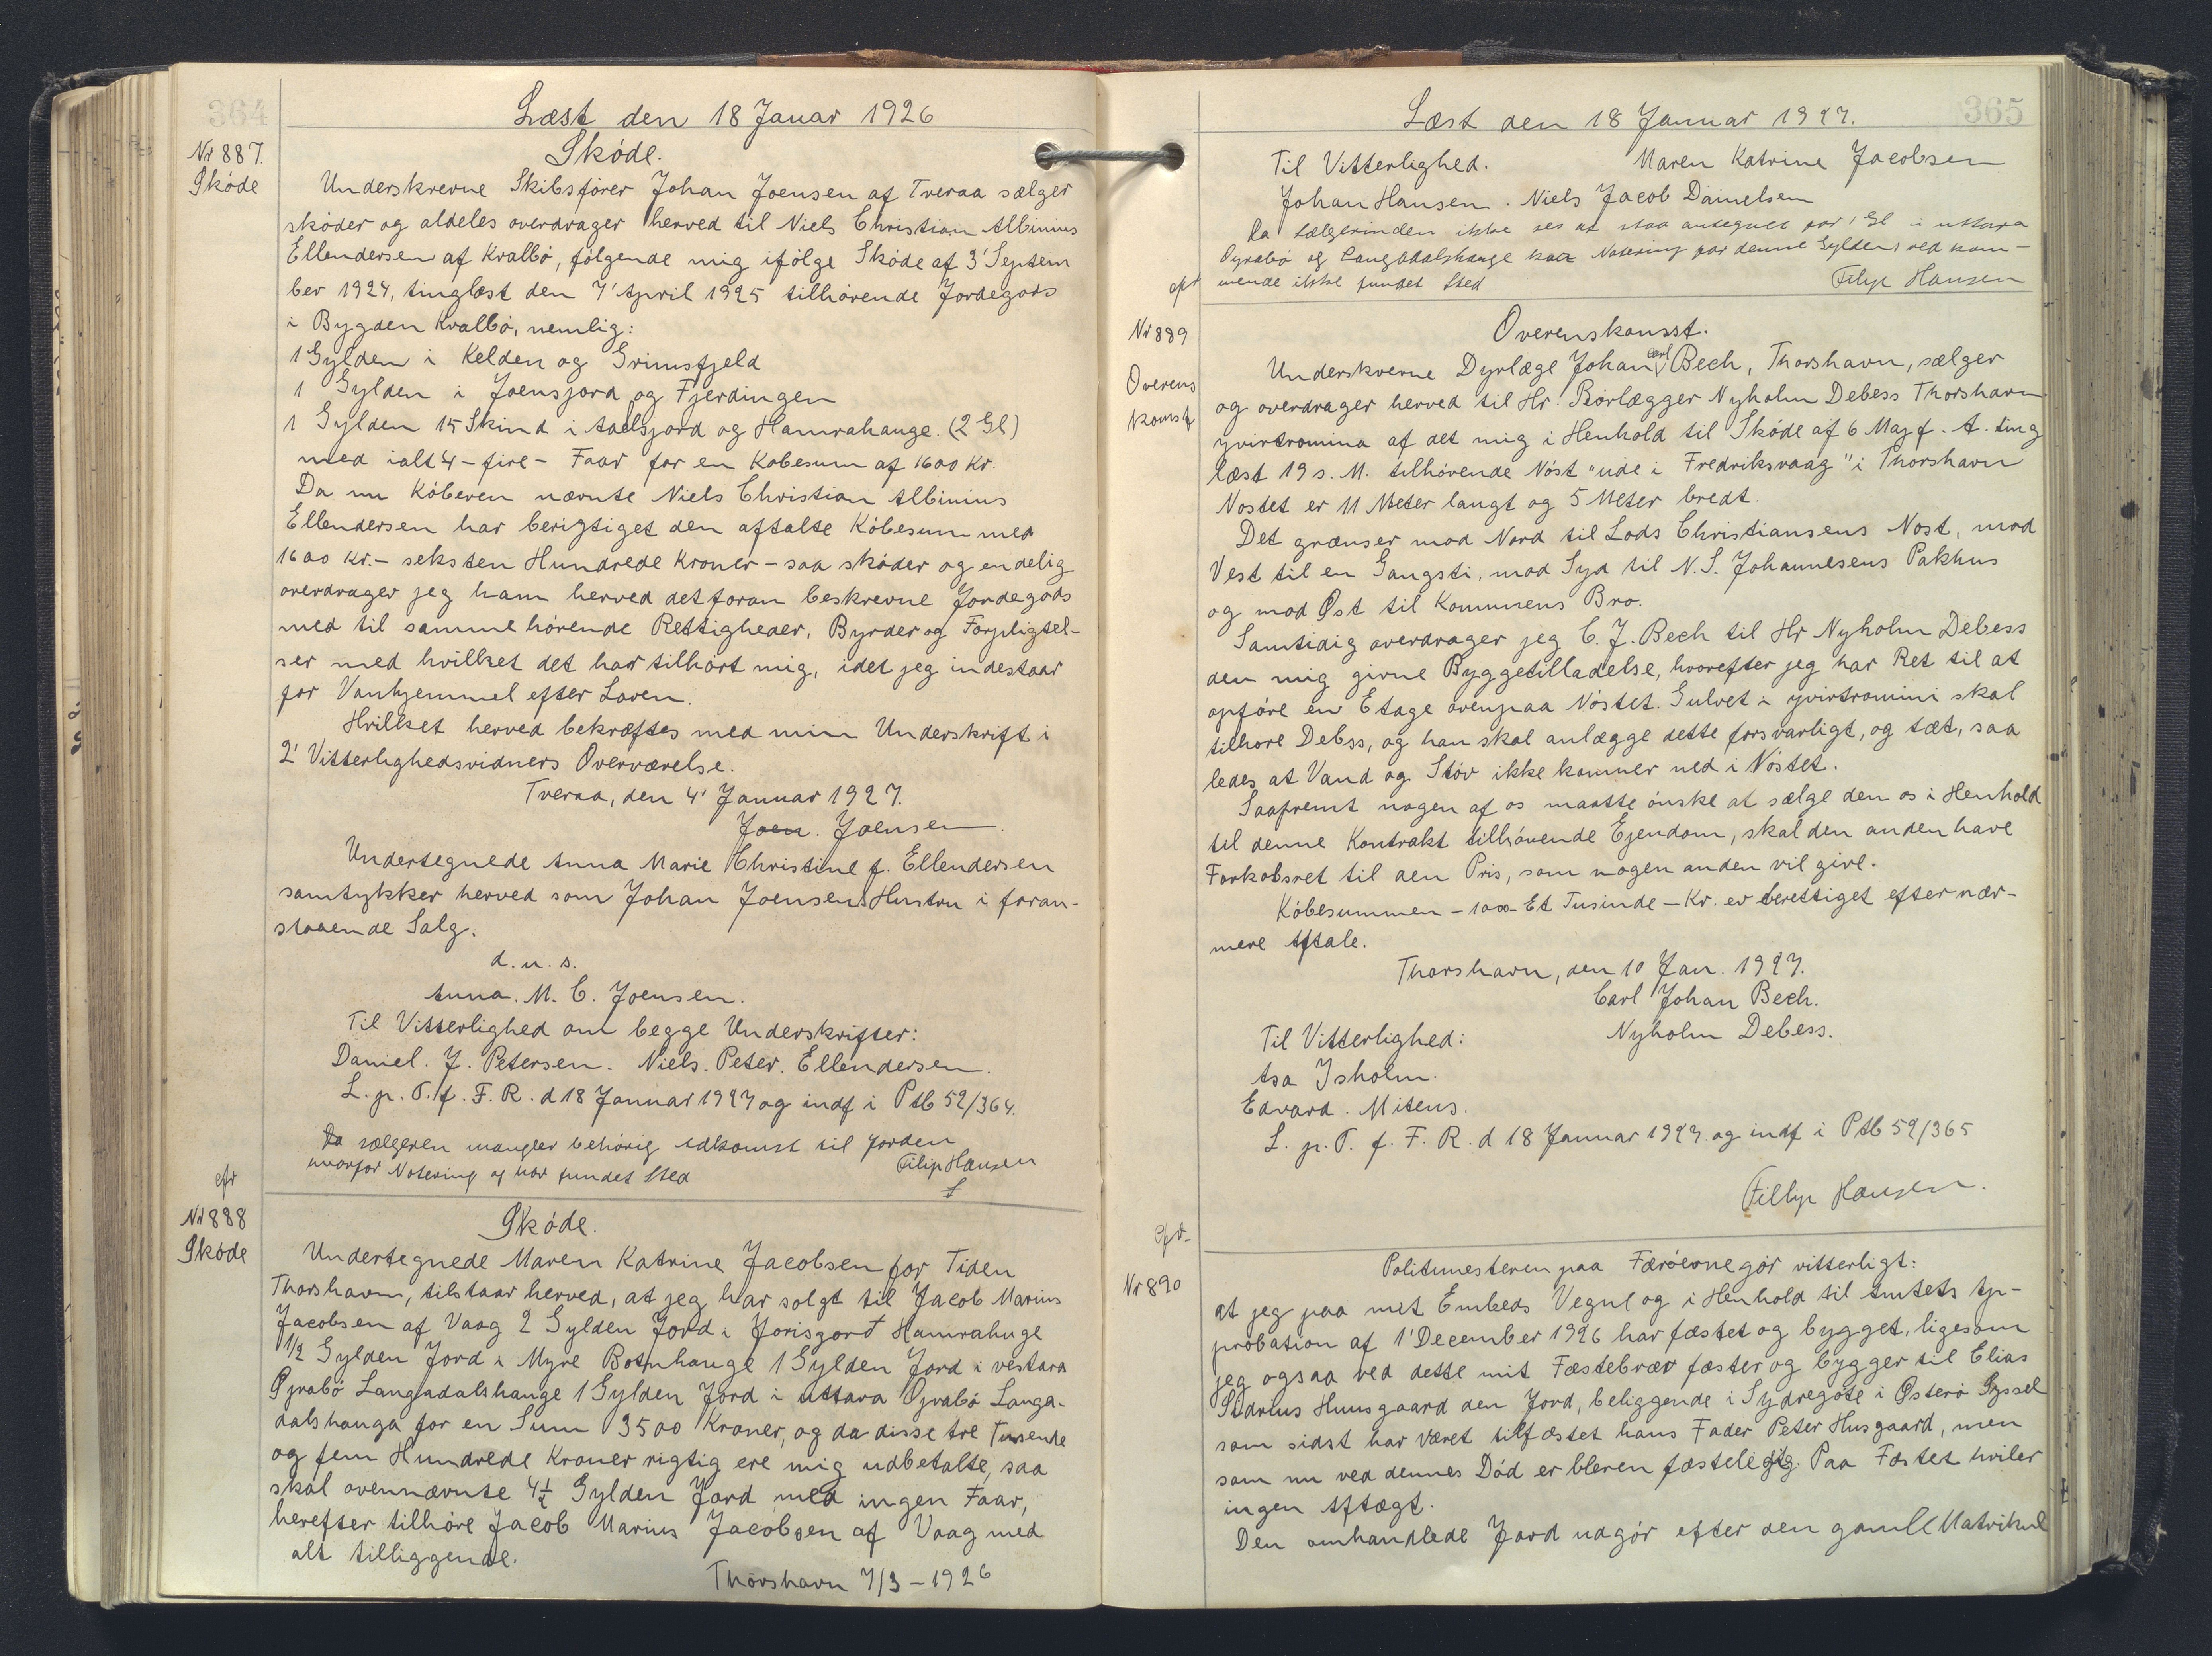 364
Læst den 18 Januar 1926
Nr 887.
Skóde
Skóde.
Underskrevne Skibsfører Johan Joensen af Tveraa sælger
skóder og aldeles overdrager herved til Niels Christian Albinius
Ellendersen af Kvalbó, fólgende mig ifólge Skóde af 3' Septem
ber 1924, tinglæst den 7' April 1925 tilhórende Jordegods
i Bygden Kvalbó, nemlig:
1 Gylden i Kelden og Grimsfjeld
1 Gylden i Joensjord og Fjerdingen
1 Gylden 15 Skind i Aadsjord og Hamrahauge. (2 Gl)
med ialt 4 - fire - Faar for en Kobesum af 1600 Kr.
Da nu Kóberen nævnte Niels Christian Albinius
Ellendersen har berigtiget den aftalte Kóbesum med
1600 Kr. - seksten Hundrede Kroner - saa skóder og endelig
overdrager jeg ham herved det foran beskrevne Jordegods
med til samme hórende Rettigheder, Byrder og Forpligtel-
ser med hvilket det har tilhórt mig, idet jeg indestaar
for Vanhjemmel efter Loven.
Hvilket herved bekræftes med min Underskrift i
2' Vitterlighedsvidners Overværelse.
Tveraa, den 4' Januar 1927.
Joen. Joensen.
Undertegnede Anna Marie Christine f. Ellendersen
samtykker herved som Johan Joensens Hustru i foran-
staaende Salg.
d. u. s.
Anna. M. C. Joensen.
Til Vitterlighed om begge Underskrifter:
Daniel. J. Petersen. Niels. Peter. Ellendersen.
L. p. T. f. F. R. d 18 Januar 1927 og indf i Ptb 52/364.
Da sælgeren mangler behórig Adkomst til Jorden
hvorfor Notering ej har fundet Sted
Filip Hansen
cfr
Nr 888
Skóde
Skóde.
Undertegnede Maren Katrine Jacobsen for Tiden
Thorshavn, tilstaar herved, at jeg har solgt til Jacob Marius
Jacobsen af Vaag 2 Gylden Jord i Jorisgord Hamrahuge
1/2 Gylden Jord i Myre Botnhauge 1 Gylden Jord i vestara
Ørabó Langadalshauge 1 Gylden Jord i uttara Ørabó Langa-
dalshauga for en Sum 3500 Kroner, og da disse tre Tusende
og fem Hundrede Kroner rigtig ere mig udbetalte, saa
skal ovennævnte 4 1/2 Gylden Jord med ingen Faar,
herefter tilhóre Jacob Marius Jacobsen af Vaag med
alt tilliggende.
Thórshavn 7/3 - 1926
365
Læst den 18 Januar 1927.
Til Vitterlighed. Maren Katrine Jacobsen
Johan Hansen. Niels Jacob Danielsen
Da sælgerinden ikke ses at staa antegnet for 1 Gl i uttara
Ørabó og Langadalshauge kan Notering for denne Gyldens vedkom-
mende ikke fundet Sted
Filip Hansen
cfr
Nr 889
Overens
komst
Overenskomst.
Underskrevne Dyrlæge Johan Carl Bech, Thorshavn, sælger
og overdrager herved til Hr. Rórlægger Nyholm Debess Thorshavn
yvirtromina af det mig i Henhold til Skóde af 6 Maj f. A. ting
læst 19 s. M. tilhórende Nóst "ude i Fredriksvaag" i Thorshavn
Nostet er 11 Meter langt og 5 Meter bredt.
Det grænser mod Nord til Lods Christiansens Nost, mod
Vest til en Gangsti, mod Syd til N. S. Johannesens Pakhus
og mod Øst til Kommunens Bro.
Samtidig overdrager jeg C. J. Bech til Hr Nyholm Debess
den mig givne Byggetilladelse, hvorefter jeg har Ret til at
opfóre en Etage ovenpaa Nóstet. Gulvet i yvirtromini skal
tilhore Debss, og han skal anlægge dette forsvarligt, og tæt, saa
ledes at Vand og Stóv ikke kommer ned i Nóstet.
Saafremt nogen af os maatte ónske at sælge den os i Henhold
til denne Kontrakt tilhórende Ejendom, skal den anden have
Forkobsret til den Pris, som nogen anden vil give.
Kóbesummen - 1000 Et Tusinde - Kr. er berettiget efter nær-
mere Aftale.
Thorshavn, den 10 Jan. 1927.
Carl Johan Bech.
Til Vitterlighed: Nyholm Debess.
Asa Isholm.
Edvard. Mitens.
L. p. T. f. F. R. d 18 Januar 1927. og indf i Ptb 52/365
Fillip Hansen.
cfr.
Nr 890
Politimesteren paa Færóerne gór vitterligt:
at jeg paa mit Embeds Vegne og i Henhold til Amtets Ap-
probation af 1' December 1926 har fæstet og bygget, ligesom
jeg ogsaa ved dette mit Fæstebrev fæster og bygger til Elias
Sidrius Huusgaard den Jord, beliggende i Sydregóte i Østeró Syssel
som sidst har været tilfæstet hans Fader Peter Husgaard, men
som nu ved dennes Dód er bleven fæsteledig. Paa Fæstet hviler
ingen Aftægt.
Den omhandlede Jord udgór efter den gamle Matrikul